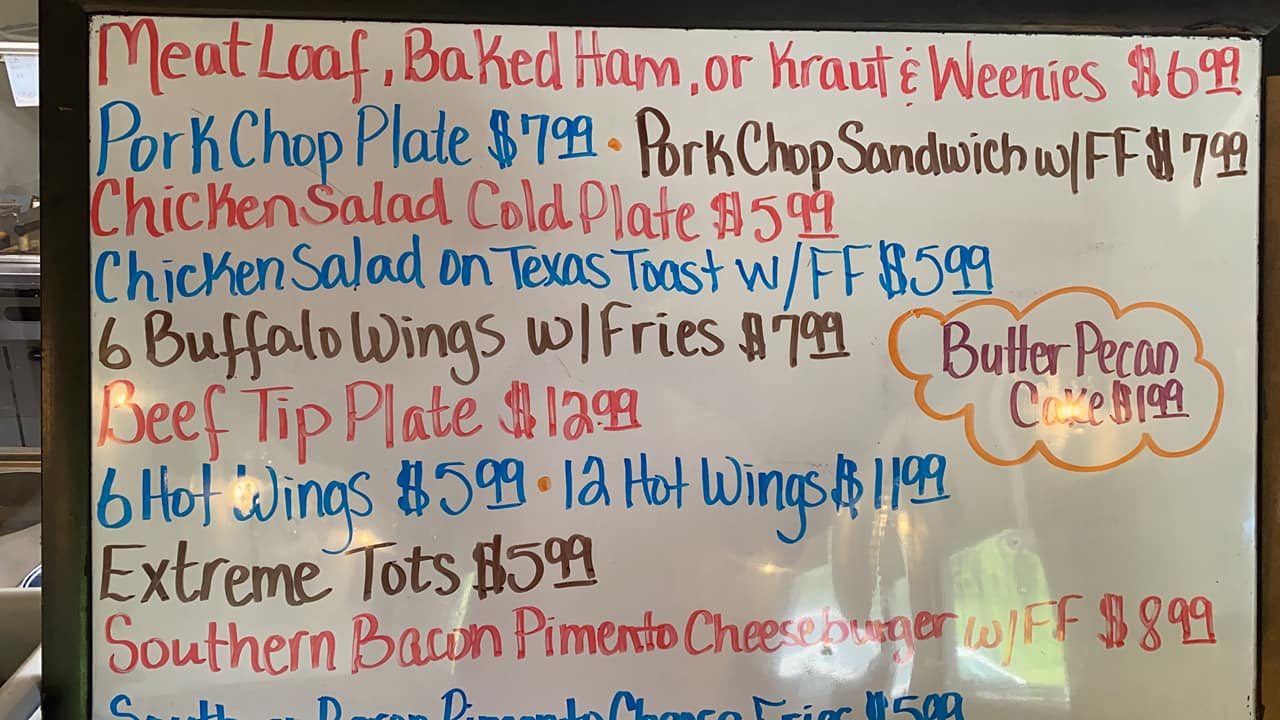 Meat Loaf, Baked Ham, or Kraut & Weenies $6.99
Pork Chop Plate $7.99 • Pork Chop Sandwich w/FF $7.99
Chicken Salad Cold Plate $5.99
Chicken Salad on Texas Toast w/FF $5.99
6 Buffalo Wings w/Fries $7.99
Butter Pecan
Cake $1.99
Beef Tip Plate $12.99
6 Hot Wings $5.99 • 12 Hot Wings $11.99
Extreme Tots $5.99
Southern Bacon Pimento Cheeseburger w/FF $8.99
Southern Bacon Pimento Cheese Fries $5.99